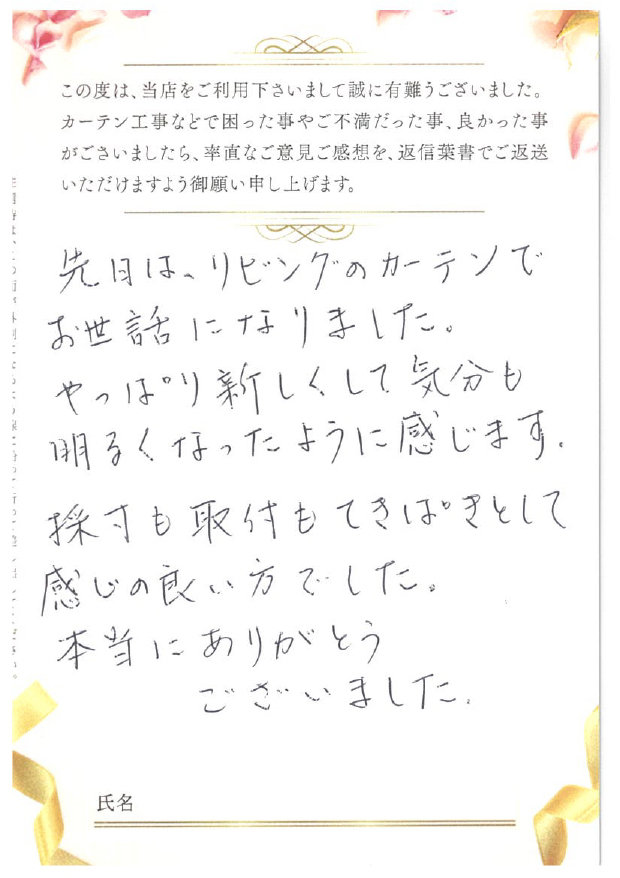 この度は、当店をご利用下さいまして誠に有難うございました。
カーテン工事などで困った事やご不満だった事、良かった事
がございましたら、率直なご意見ご感想を、返信葉書でご返送
いただけますよう御願い申し上げます。
先日は、リビングのカーテンで
お世話になりました。
やっぱり新しくして気分も
明るくなったように感じます.
採寸も取付もてきぱきとして
感じの良い方でした。
本当にありがとう
ございました.
氏名